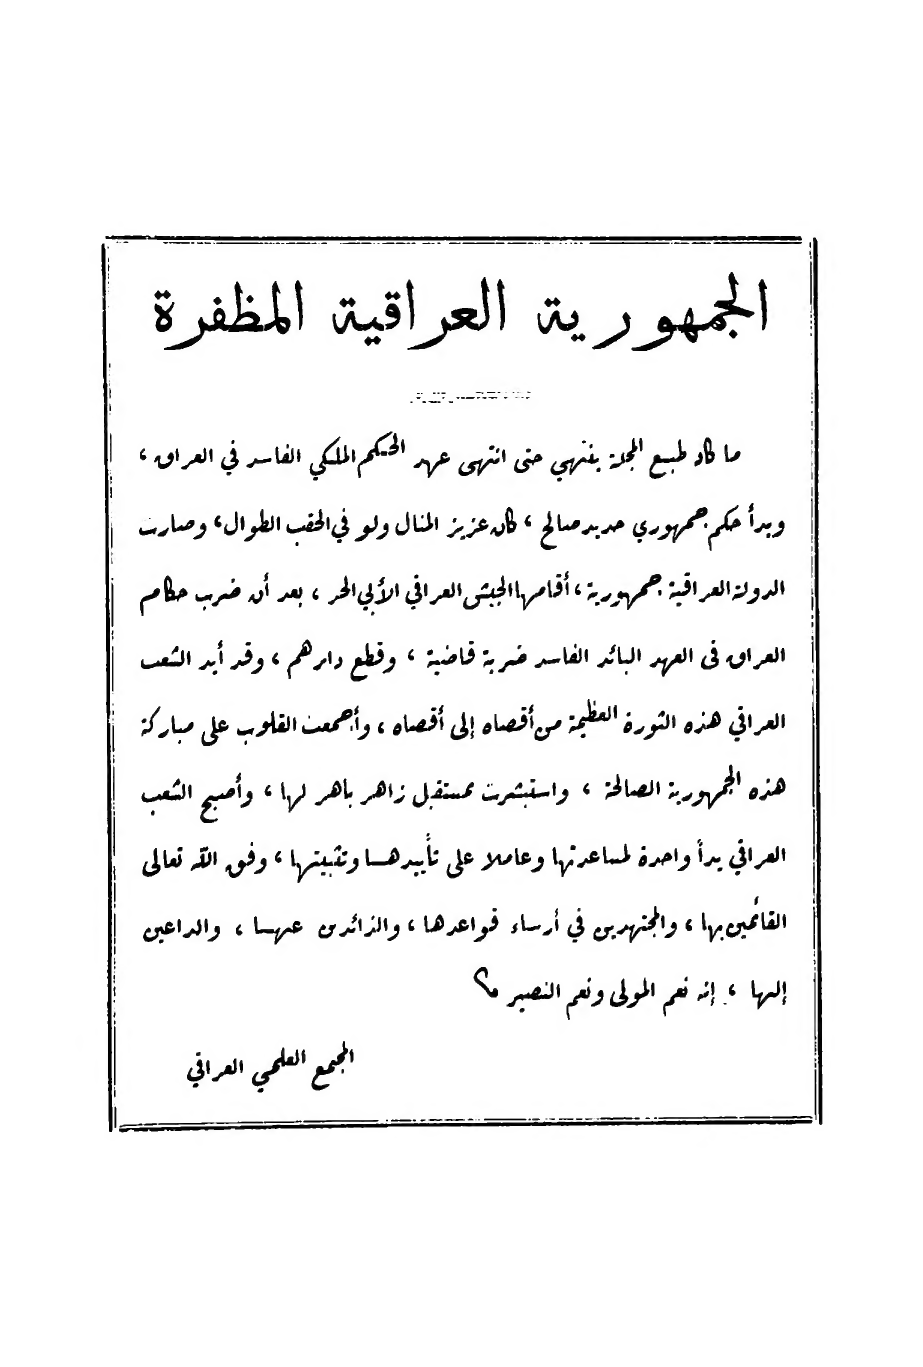 الجمهورية العراقية المظفرة
ما كاد طبع المجلة ينتهي حتى انتهى عهد الحكم الملكي الفاسد في العراق ،
وبدأ حكم جمهوري جديد صالح ، كان عزيز المنال ولو في الحقب الطوال ، وصارت
الدولة العراقية جمهورية ، أقامها الجيش العراقي الأبي الحر ، بعد أن ضرب حكام
العراق في العهد البائد الفاسد ضربة قاضية ، وقطع دابرهم ، وقد أيد الشعب
العراقي هذه الثورة العظيمة من أقصاه إلى أقصاه ، وأجمعت القلوب على مباركة
هذه الجمهورية الصالحة ، واستبشرت بمستقبل زاهر باهر لها ، وأصبح الشعب
العراقي يداً واحدة لمساعدتها وعاملا على تأييدها وتثبيتها ، وفق الله تعالى
القائمين بها ، والمجتهدين في أرساء قواعدها ، والذائدين عنها ، والداعين
إليها ، إنه نعم المولى ونعم النصير
المجمع العلمي العراقي